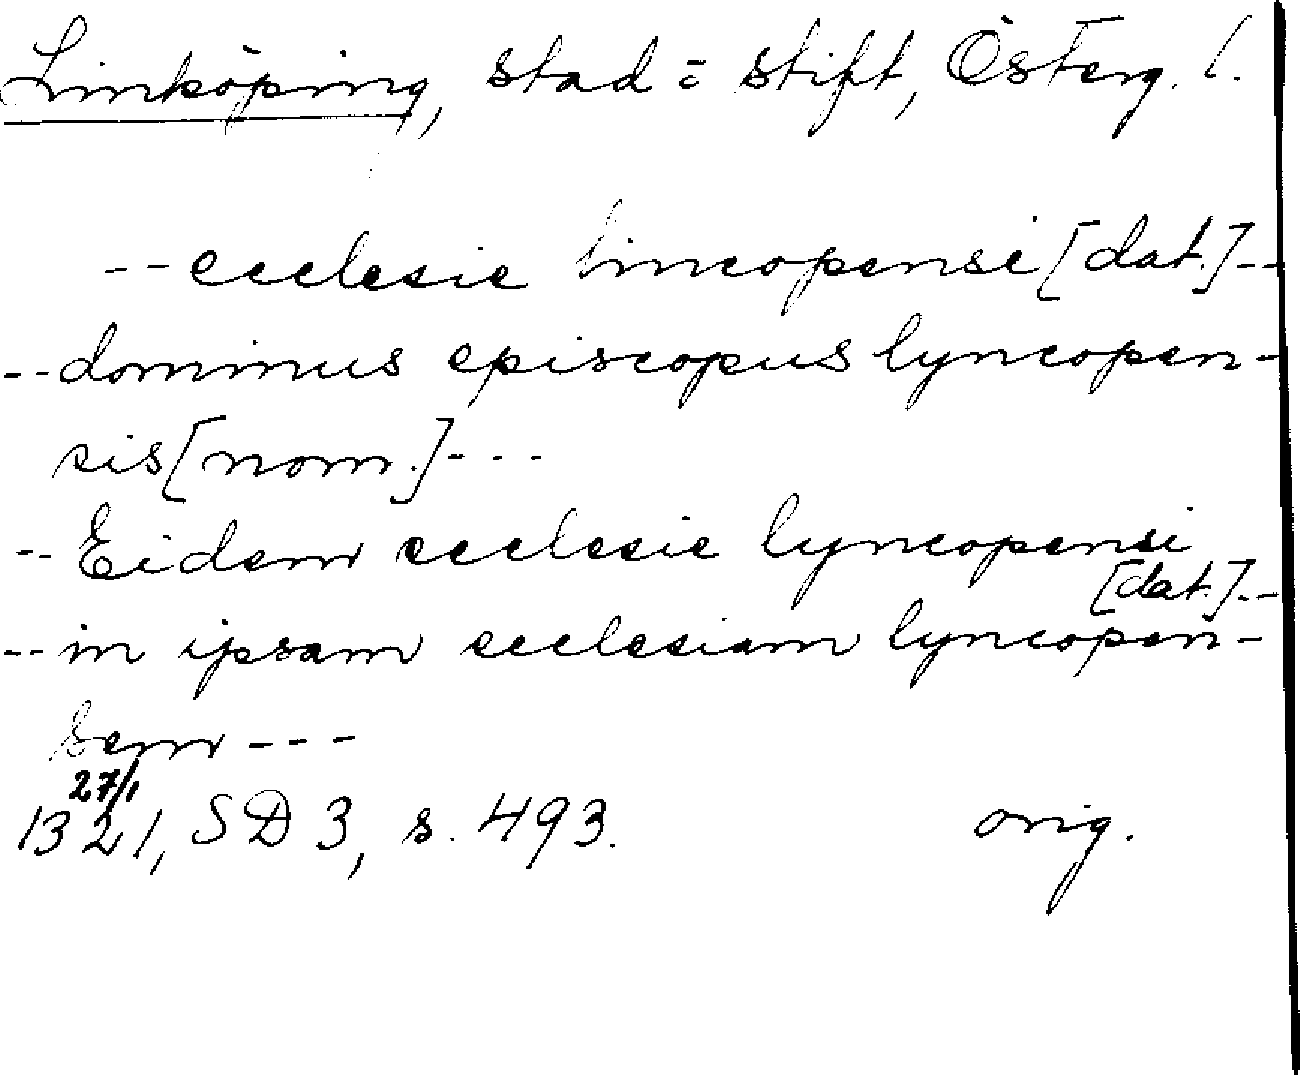 Linköping, stad o stift, Österg. l.
-- ecclesie lincopensi [dat.]--
-- dominus episcopus lyncopen-
sis [nom.]---
-- Eidem ecclesie lyncopensi
[dat.]--
-- in ipsam ecclesiam lyncopen-
sem ---
27/1
1321, SD 3, s. 493. orig.